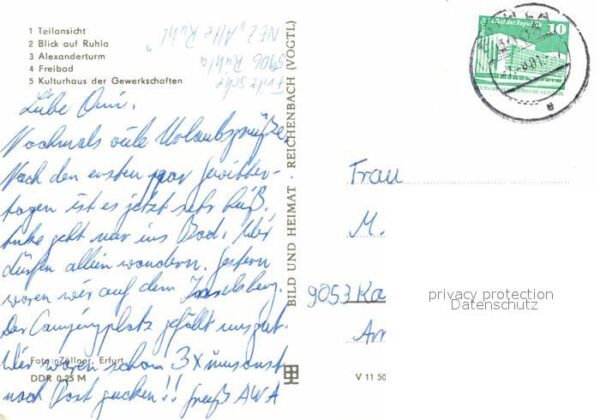 1 Teilansicht
2 Blick auf Ruhla
3 Alexanderturm
4 Freibad
5 Kulturhaus der Gewerkschaften
Fritzsche
5906 Ruhla
NEZ "Alte Ruhl"
Liebe Omi.
Nochmals viele Urlaubsgrüße.
Nach den ersten paar Gewitter-
tagen ist es jetzt sehr heiß.
geht nur ins Bad. Wir
dürfen allein wandern. Gestern
waren wir auf dem Inselsberg.
Der Campingplatz gefällt uns gut.
Wir waren schon 3x umsonst
nach Post gucken!! Gruß AWA
Foto: Zöllner, Erfurt
DDR 0,25 M
BILD UND HEIMAT · REICHENBACH (VOGTL)
V 11 50
10
Frau
M.
9053 Ka
privacy protection
Datenschutz